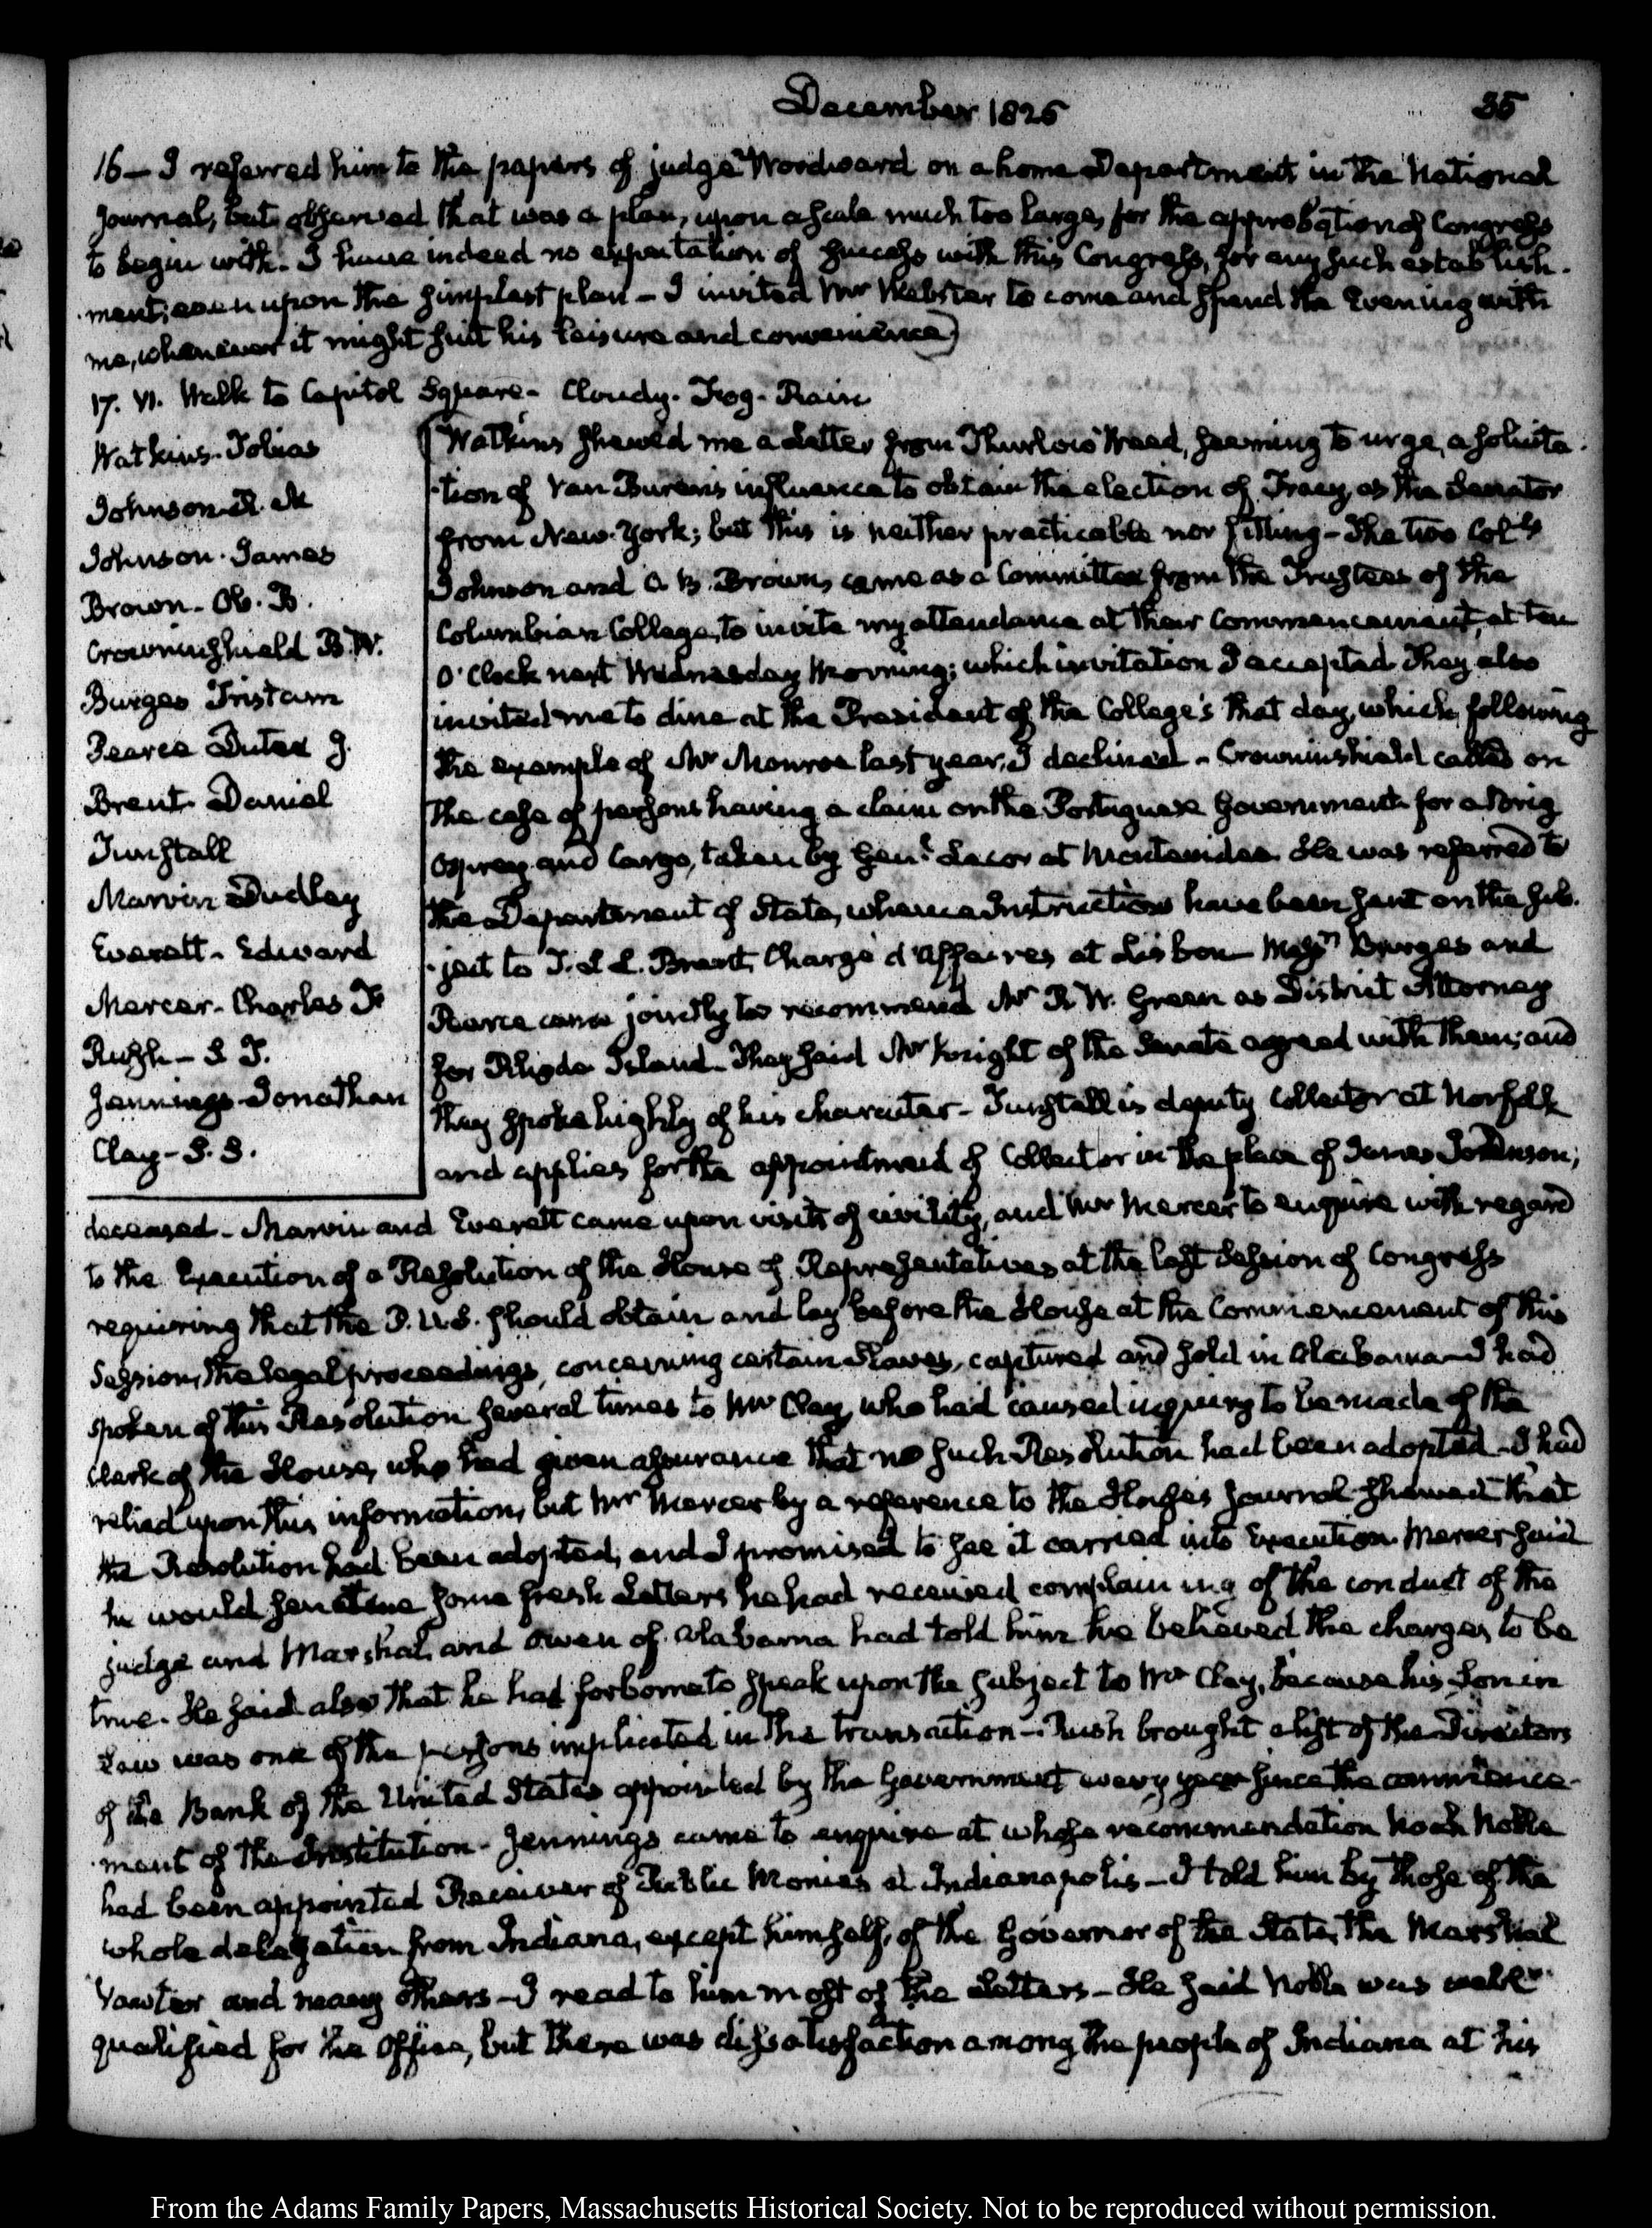 December 1825
35
16 – I referred him to the papers of judge Woodward on a home Department in the National
Journal, but observed that was a plan, upon a scale much too large, for the approbation of Congress
to begin with. I have indeed no expectation of success with this Congress, for any such establish-
ment, even upon the simplest plan – I invited Mr Webster to come and spend the Evening with
me, whenever it might suit his leisure and convenience)
17. VI. Walk to Capitol Square – Cloudy. Fog – Rain
Watkins. Tobias
Johnson. R. M
Johnson. James
Brown – Ob. B.
Crowninshield B. W.
Burges Tristam
Pearce Dutee J.
Brent Daniel
Tunstall
Marvin Dudley
Everett – Edward
Mercer – Charles F
Rush – S T.
Jennings Jonathan
Clay – S. S.
(Watkins shewed me a Letter from Thurlow Weed, seeming to urge, a solicita-
tion of Van Buren's influence to obtain the election of Tracy, as the Senator
from New-York; but this is neither practicable nor fitting – The two Col.ls
Johnson and O. B. Brown, came as a Committee from the Trustees of the
Columbian College, to invite my attendance at their Commencement, at ten
O'Clock next Wednesday Morning; which invitation I accepted. They also
invited me to dine at the President of the College's that day, which, following
the example of Mr Monroe last year, I declined – Crowninshield called on
the case of persons having a claim on the Portuguese Government for a Brig
Osprey and Cargo, taken by Genl. Lecor at Montevideo. He was referred to
the Department of State, whence Instructions have been sent on the sub-
ject to T. L. L. Brent, Chargé d'Affaires at Lisbon – Messrs Burges and
Pearce came jointly to recommend Mr R. W. Green as District Attorney
for Rhode Island – They said Mr Knight of the Senate agreed with them; and
they spoke highly of his character – Tunstall is deputy Collector at Norfolk
and applies for the appointment of Collector in the place of James Johnson,
deceased – Marvin and Everett came upon visits of civility, and Mr Mercer to enquire with regard
to the Execution of a Resolution of the House of Representatives at the last Session of Congress
requiring that the P. U.S. should obtain and lay before the House at the Commencement of this
Session, the legal proceedings, concerning certain Slaves, captured and sold in Alabama – I had
spoken of this Resolution several times to Mr Clay, who had caused inquiry to be made of the
Clerk of the House, who had given assurance that no such Resolution had been adopted – I had
relied upon this information, but Mr Mercer by a reference to the House's Journal shewed that
the Resolution had been adopted, and I promised to see it carried into Execution. Mercer said
he would send me some fresh Letters he had received complaining of the conduct of the
judge and Marshal, and Owen of Alabama had told him he believed the charges to be
true. He said also that he had forborne to speak upon the subject to Mr Clay, because his Son in
Law was one of the persons implicated in the transaction – Rush brought a list of the Directors
of the Bank of the United States appointed by the Government every year since the commence-
ment of the Institution – Jennings came to enquire at whose recommendation Noah Noble
had been appointed Receiver of Public Monies at Indianapolis – I told him by those of the
whole delegation from Indiana, except himself, of the Governor of the State, the Marshal
Vawter and many others – I read to him most of the Letters – He said Noble was well
qualified for the Office, but there was dissatisfaction among the people of Indiana at his
From the Adams Family Papers, Massachusetts Historical Society. Not to be reproduced without permission.